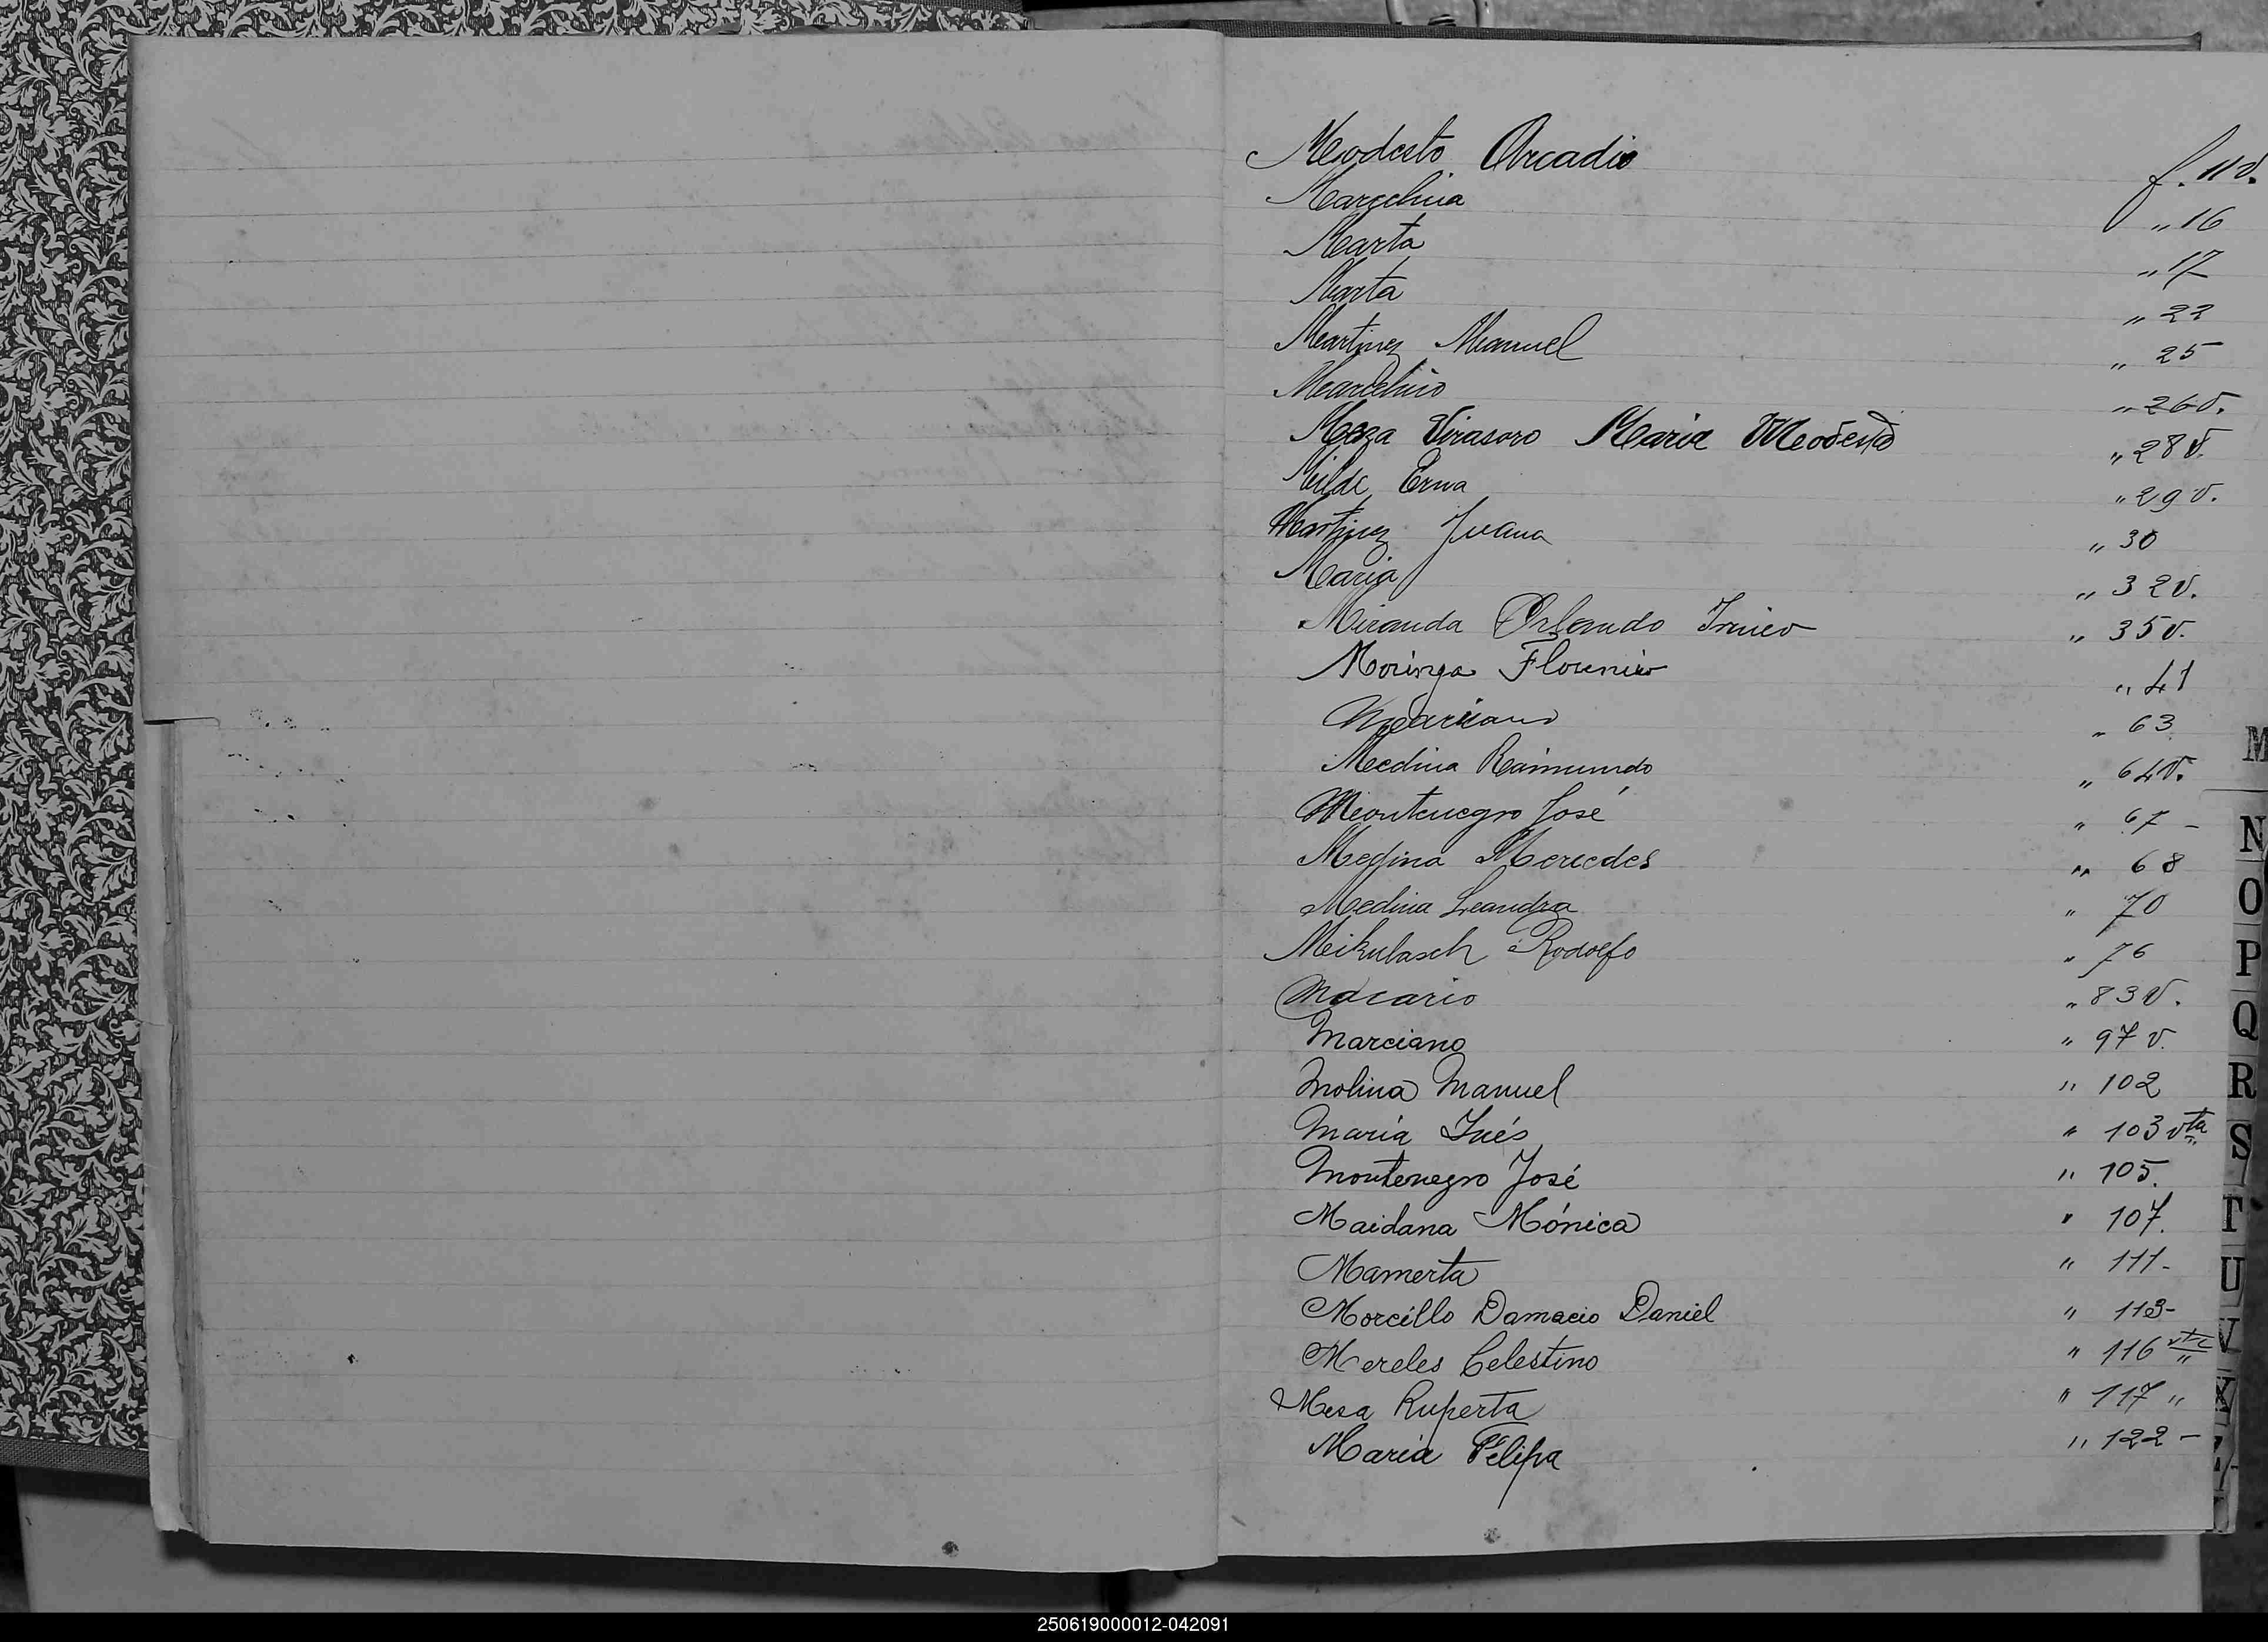 Modesto Arcadio f. 11v.
Marcelina " 16
Marta " 17
Marta " 22
Martinez Manuel " 25
Marcelino " 26v.
Meza Virasoro Maria Modesta " 28v.
Milde Erna " 29v.
Martinez Juana " 30
Maria " 32v.
Miranda Orlando Irineo " 35v.
Moringa Florencio " 41
Mariano " 63
Medina Raimundo " 64v.
Montenegro José " 67 -
Medina Mercedes " 68
Medina Leandra " 70
Mikulasch Rodolfo " 76
Macario " 83v.
Marciano " 97v.
Molina Manuel " 102
María Inés " 103 vta
Montenegro José " 105.
Maidana Mónica " 107.
Mamerta " 111-
Morcillo Damacio Daniel " 113-
Mereles Celestino " 116 vta
Mesa Ruperta " 117 "
María Felipa " 122 -
M
N
O
P
Q
R
S
T
U
V
X
250619000012-042091